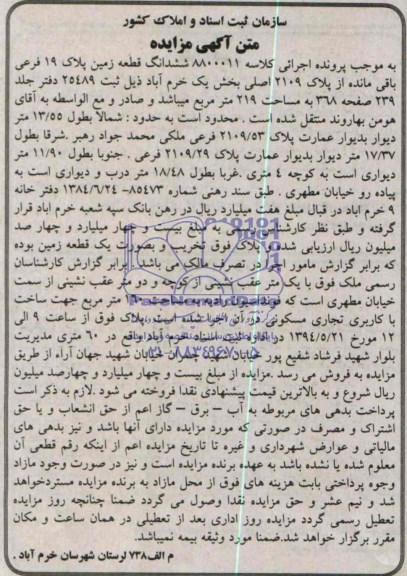 سازمان ثبت اسناد و املاک کشور
متن آگهی مزایده
به موجب پرونده اجرائی کلاسه ۸۸۰۰۰۱۱ ششدانگ قطعه زمین پلاک ۱۹ فرعی
باقی مانده از پلاک ۲۱۰۹ اصلی بخش یک خرم آباد ذیل ثبت ۲۵۴۸۹ دفتر جلد
۲۳۹ صفحه ۳۶۸ به مساحت ۲۱۹ متر مربع میباشد و صادر و مع الواسطه به آقای
هومن بهاروند منتقل شده است . محدود است به حدود : شمالاً بطول ۱۳/۵۵ متر
دیوار بدیوار عمارت پلاک ۲۱۰۹/۵۳ فرعی ملکی محمد جواد رهبر .شرقا بطول
۱۷/۳۷ متر دیوار بدیوار عمارت پلاک ۲۱۰۹/۲۹ فرعی . جنوبا بطول ۱۱/۹۰ متر
دیواری است به کوچه ٤ متری .غربا بطول ۱۸/۴۸ متر درب و دیواری است به
پیاده رو خیابان مطهری . طبق سند رهنی شماره ۸۵۴۷۳– ۱۳۸۴/۶/۲۴ دفتر خانه
۹ خرم آباد در قبال مبلغ هفت میلیارد ریال در رهن بانک سپه شعبه خرم آباد قرار
گرفته و طبق نظر کارشناسان رسمی به مبلغ بیست و چهار میلیارد و چهار صد
میلیون ریال ارزیابی شده و پلاک فوق تخریب و بصورت یک قطعه زمین بوده
که برابر گزارش مامور اجرا در تصرف مالک می باشد. برابر گزارش کارشناسان
رسمی ملک فوق با یک متر عقب نشینی از کوچه و دو متر عقب نشینی از سمت
خیابان مطهری است که فونداسیون آماده به مساحت ۱۶۰ متر مربع جهت ساخت
با کاربری تجاری مسکونی در آن اجرا شده است .پلاک فوق از ساعت ۹ الی
۱۲ مورخ ۱۳۹۴/۵/۲۱ در اداره ثبت اسناد خرم آباد واقع در ۶۰ متری مدیریت
بلوار شهید فرشاد شفیع پور خیابان شهید خیابان شهید جهان آراء از طریق
مزایده به فروش می رسد .مزایده از مبلغ بیست و چهار میلیارد و چهارصد میلیون
ریال شروع و به بالاترین قیمت پیشنهادی نقدا فروخته می شود .لازم به ذکر است
پرداخت بدهی های مربوطه به آب – برق – گاز اعم از حق انشعاب و یا حق
اشتراک و مصرف در صورتی که مورد مزایده دارای آنها باشد و نیز بدهی های
مالیاتی و عوارض شهرداری و غیره تا تاریخ مزایده اعم از اینکه رقم قطعی آن
معلوم شده یا نشده باشد به عهده برنده مزایده است و نیز در صورت وجود مازاد
وجوه پرداختی بابت هزینه های فوق از محل مازاد به برنده مزایده مستردخواهد
شد و نیم عشر و حق مزایده نقدا وصول می گردد ضمنا چنانچه روز مزایده
تعطیل رسمی گردد مزایده روز اداری بعد از تعطیلی در همان ساعت و مکان
مقرر برگزار خواهد شد.ضمنا مورد وثیقه بیمه نمیباشد.
م الف۷۳۸ لرستان شهرسان خرم آباد .